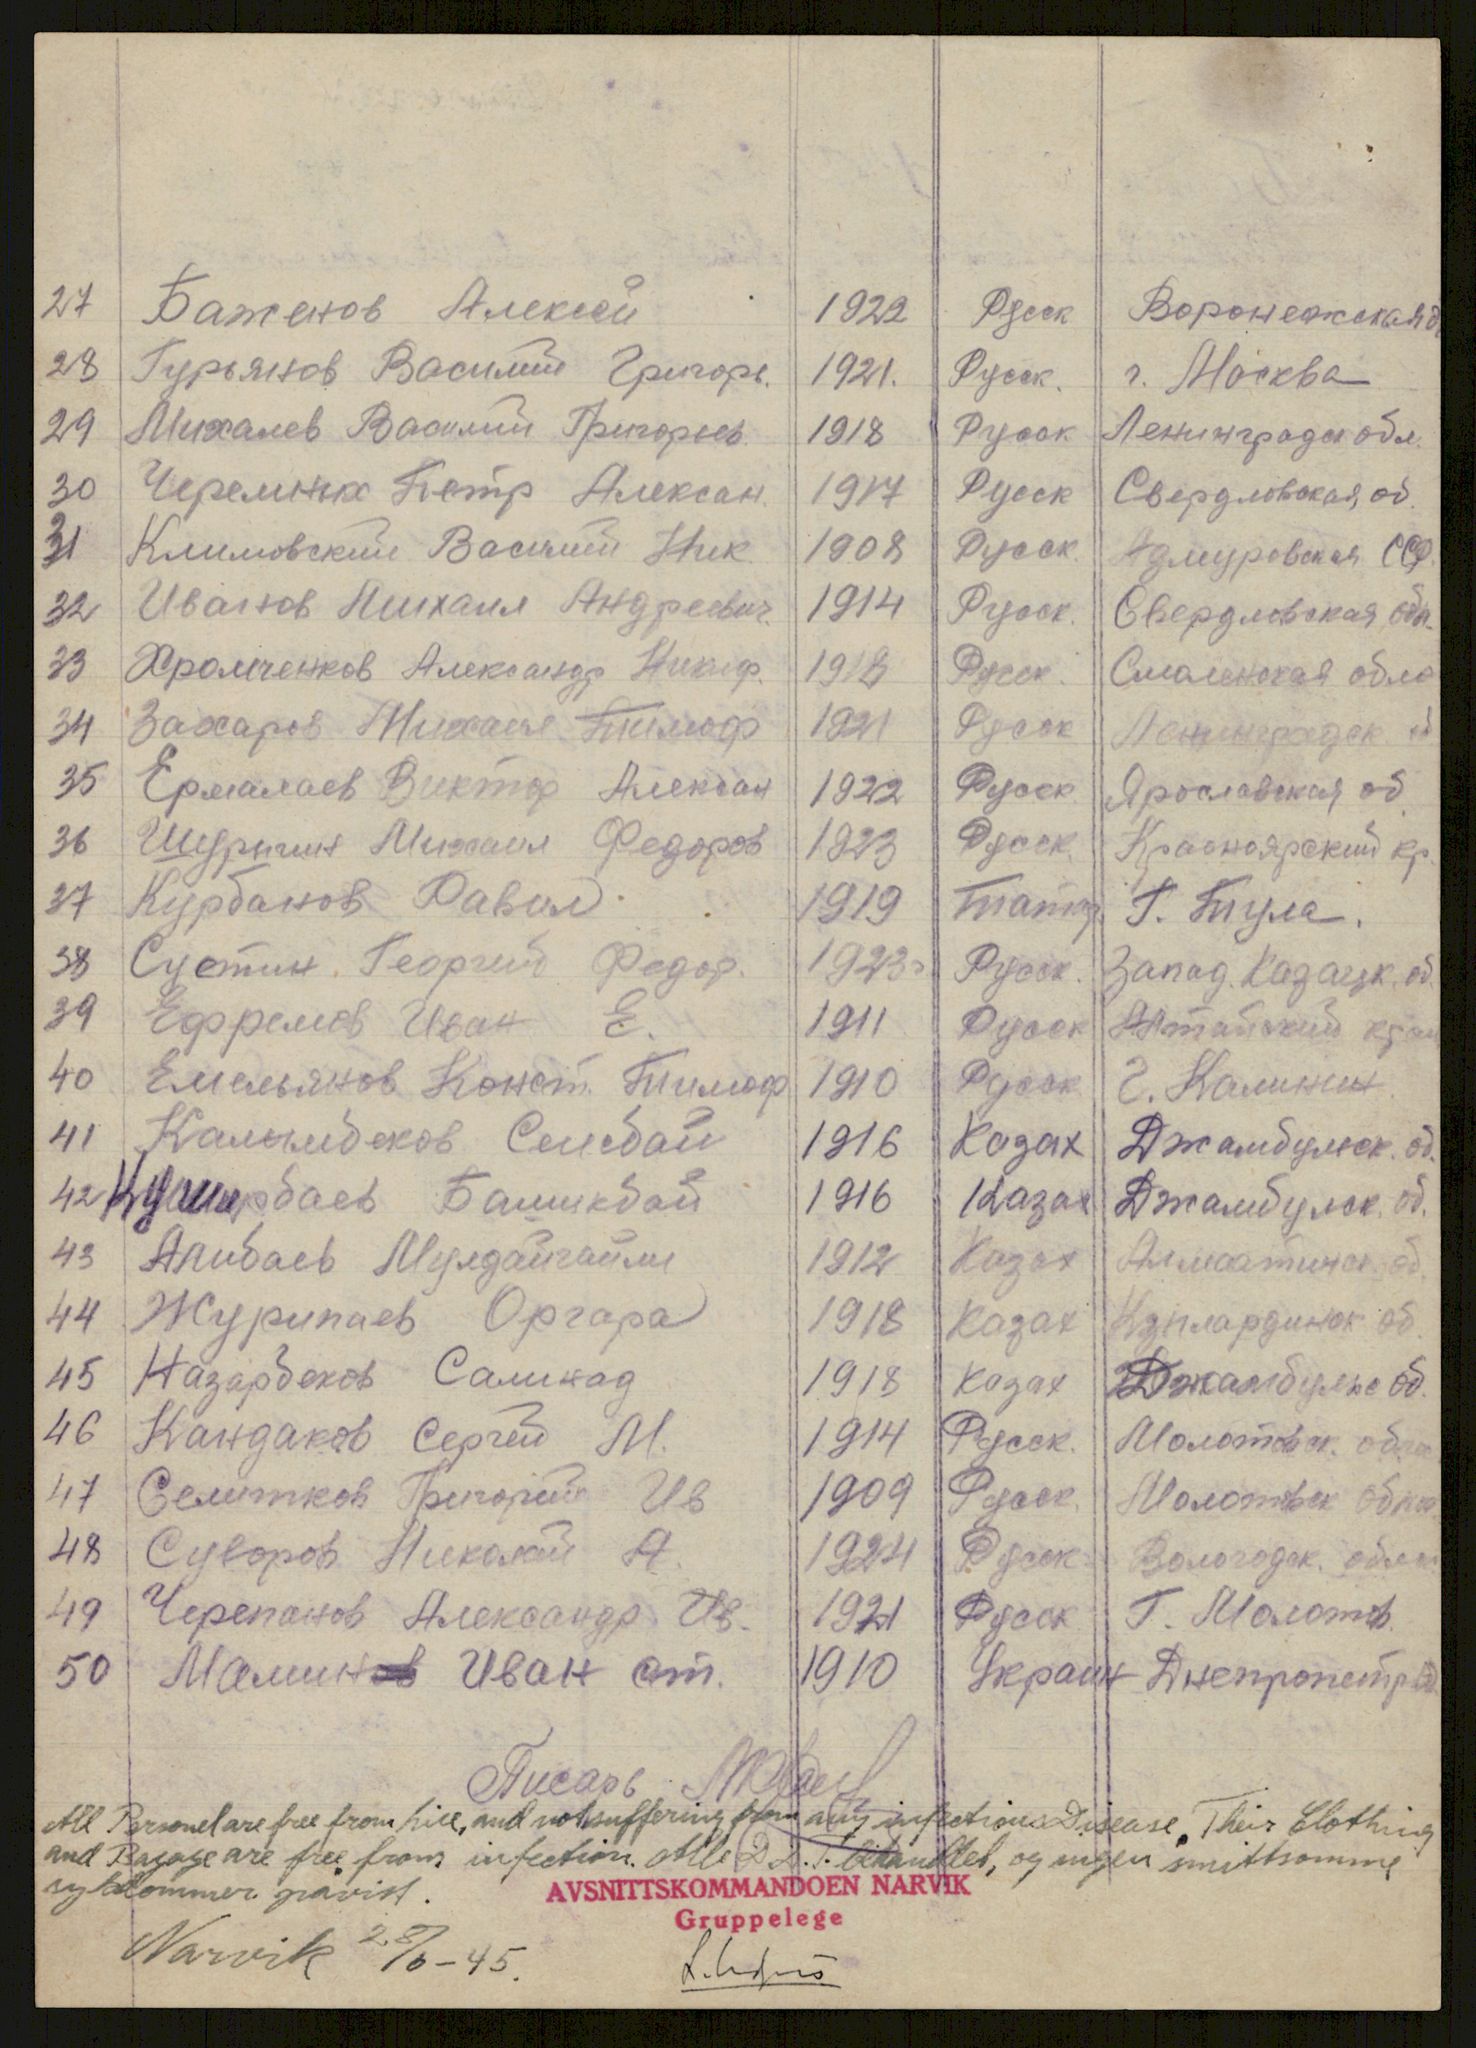 27 Баженов Алексей 1922 Русск Воронежская о
28 Гурьянов Василий Григорь. 1921. Русск. г. Москва
29 Михалев Василий Григорьев. 1918 Русск Ленинградск обл.
30 Черемных Петр Алексан. 1917 Русск Свердловская об.
31 Климовский Василий Ник. 1908 Русск. Адмуровская ССР.
32 Иванов Михаил Андреевич. 1914 Русск. Свердловская обл.
33 Хромченков Александр Никиф. 1918 Русск. Смоленская обла
34 Захаров Михаил Тимоф 1921 Русск Ленинградск. об
35 Ермалаев Виктор Алексан 1922 Русск Ярославская об.
36 Шурыгин Михаил Федоров 1923 Русск. Красноярский кр.
37 Курбанов Равил 1919 Татар Г. Тула.
38 Сустин Георгий Федор. 1923 Русск. Запад. Казацк. об.
39 Ефремов Иван Е. 1911 Русск Алтайский край
40 Емельянов Конст. Тимоф 1910 Русск Г. Калинин.
41 Калымбеков Сеисбай 1916 Казах Джамбульск. об.
42 Башикбай 1916 Казах Джамбульск. об.
43 Алибаев 1912 Казах Алмаатинск. об.
44 Журипаев Оргара 1918 Казах Кзылардинск об.
45 Назарбеков Салинад 1918 Казах Джамбульс об.
46 Кандаков Сергей М. 1914 Русск. Молотовск. облас
47 Селитков Григорий Ив 1909 Русск. Молотовск облас
48 Суворов Николай А. 1924 Русск Вологодск. облас
49 Черепанов Александр Ив. 1921 Русск Г. Молотов.
50 Мамин Иван от. 1910 Украин Днепропетр об.
Писарь
All Personel are free from lice, and not suffering from any infections Disease. Their Clothing
and Bagage are free from infection. Alle D.D.T. behandlet, og ingen smittsomme
sykdommer påvist.
AVSNITTSKOMMANDOEN NARVIK
Gruppelege
Narvik 28/6-45.